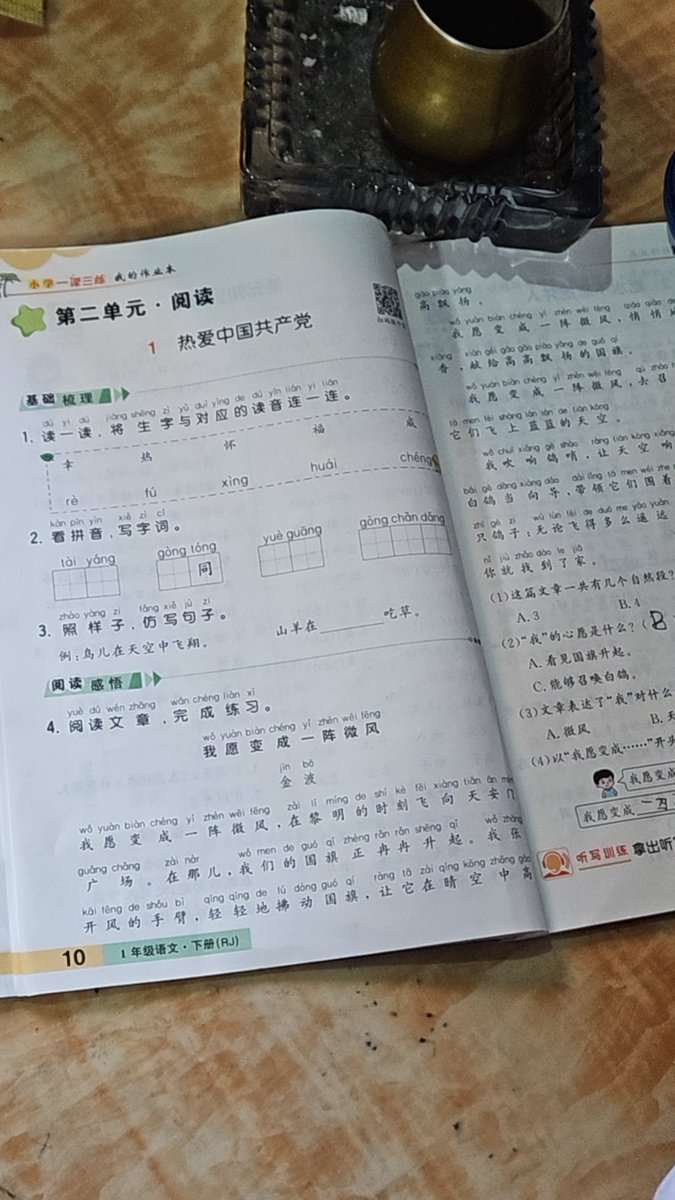 小学一课三练 我的作业本
第二单元·阅读
1 热爱中国共产党
基础梳理
dú yi dú jiāng shēng zì yǔ duì yìng de dú yīn lián yi lián
1. 读一读，将生字与对应的读音连一连。
幸 热 怀 福 成
rè fú xìng huái chéng
kàn pīn yīn xiě zì cí
2. 看拼音，写字词。
tài yáng gòng tóng yuè guāng gòng chǎn dǎng
同
zhào yàng zi fǎng xiě jù zi
3. 照样子，仿写句子。
例：鸟儿在天空中飞翔。 山羊在________吃草。
阅读感悟
yuè dú wén zhāng wán chéng liàn xí
4. 阅读文章，完成练习。
wǒ yuàn biàn chéng yí zhèn wēi fēng
我愿变成一阵微风
jīn bō
金波
wǒ yuàn biàn chéng yí zhèn wēi fēng zài lí míng de shí kè fēi xiàng tiān ān mén
我愿变成一阵微风，在黎明的时刻飞向天安门
guǎng chǎng zài nàr wǒ men de guó qí zhèng rǎn rǎn shēng qǐ wǒ zhāng
广场。在那儿，我们的国旗正冉冉升起。我张
kāi fēng de shǒu bì qīng qīng de fú dòng guó qí ràng tā zài qíng kōng zhōng gāo
开风的手臂，轻轻地拂动国旗，让它在晴空中高
10 1年级语文·下册(RJ)
gāo piāo yáng
高飘扬。
wǒ yuàn biàn chéng yí zhèn wēi fēng qiāo qiāo de
我愿变成一阵微风，悄悄地
xiāng xiàn gěi gāo gāo piāo yáng de guó qí
香，献给高高飘扬的国旗。
wǒ yuàn biàn chéng yí zhèn wēi fēng qù zhāo
我愿变成一阵微风，去召
tā men fēi shàng lán lán de tiān kōng
它们飞上蓝蓝的天空。
wǒ chuī xiǎng gē shào ràng tiān kōng xiǎng
我吹响鸽哨，让天空响
bái gē dāng xiàng dǎo dài lǐng tā men wéi zhe
白鸽当向导，带领它们围着
zhī gē zi wú lùn fēi de duō me yáo yuǎn
只鸽子；无论飞得多么遥远
nǐ jiù zhǎo dào le jiā
你就找到了家。
(1)这篇文章一共有几个自然段?
A. 3 B. 4
(2)“我”的心愿是什么?( B
A. 看见国旗升起。
C. 能够召唤白鸽。
(3)文章表达了“我”对什么
A. 微风 B. 天
(4)以“我愿变成……”开头
我愿变成
我愿变成
听写训练 拿出听